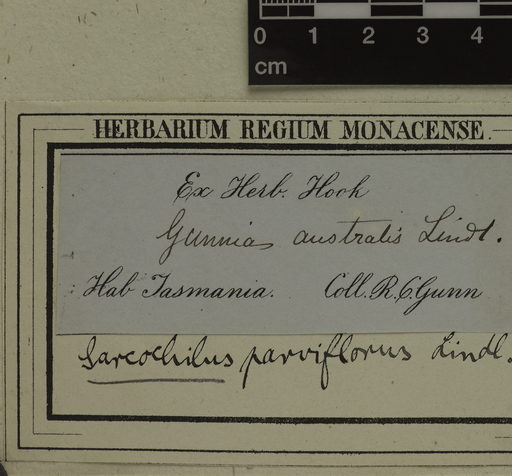 0 1 2 3 4
cm
HERBARIUM REGIUM MONACENSE.
Ex Herb. Hook
Gunnia australis Lindl.
Hab Tasmania. Coll. R. C. Gunn
Sarcochilus parviflorus Lindl.